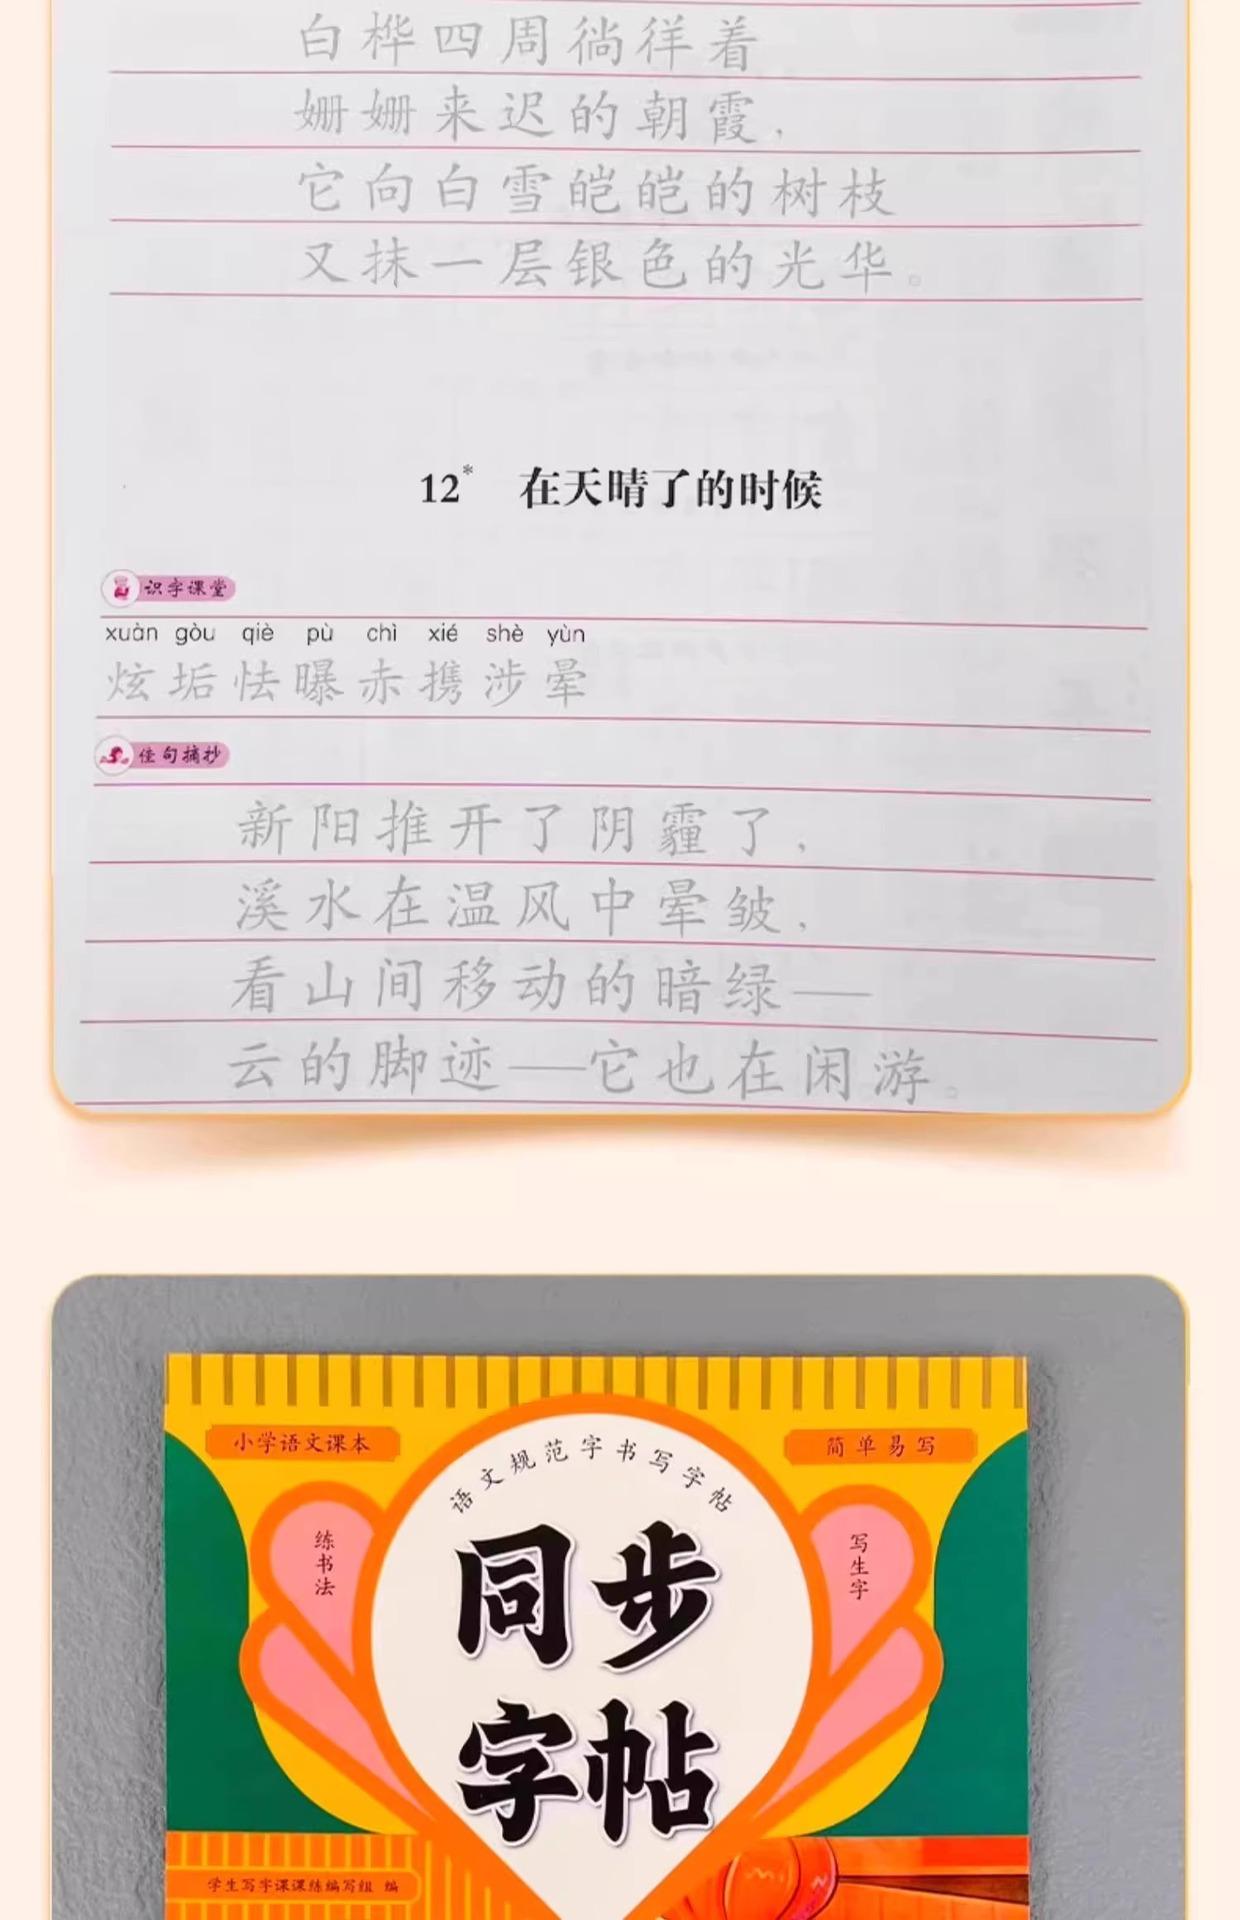 白桦四周徜徉着
姗姗来迟的朝霞，
它向白雪皑皑的树枝
又抹一层银色的光华。
12* 在天晴了的时候
识字课堂
xuàn gòu qiè pù chì xié shè yùn
炫垢怯曝赤携涉晕
佳句摘抄
新阳推开了阴霾了，
溪水在温风中晕皱，
看山间移动的暗绿——
云的脚迹——它也在闲游。
小学语文课本
简单易写
语文规范字书写字帖
练书法
写生字
同步
字帖
学生写字课课练编写组 编